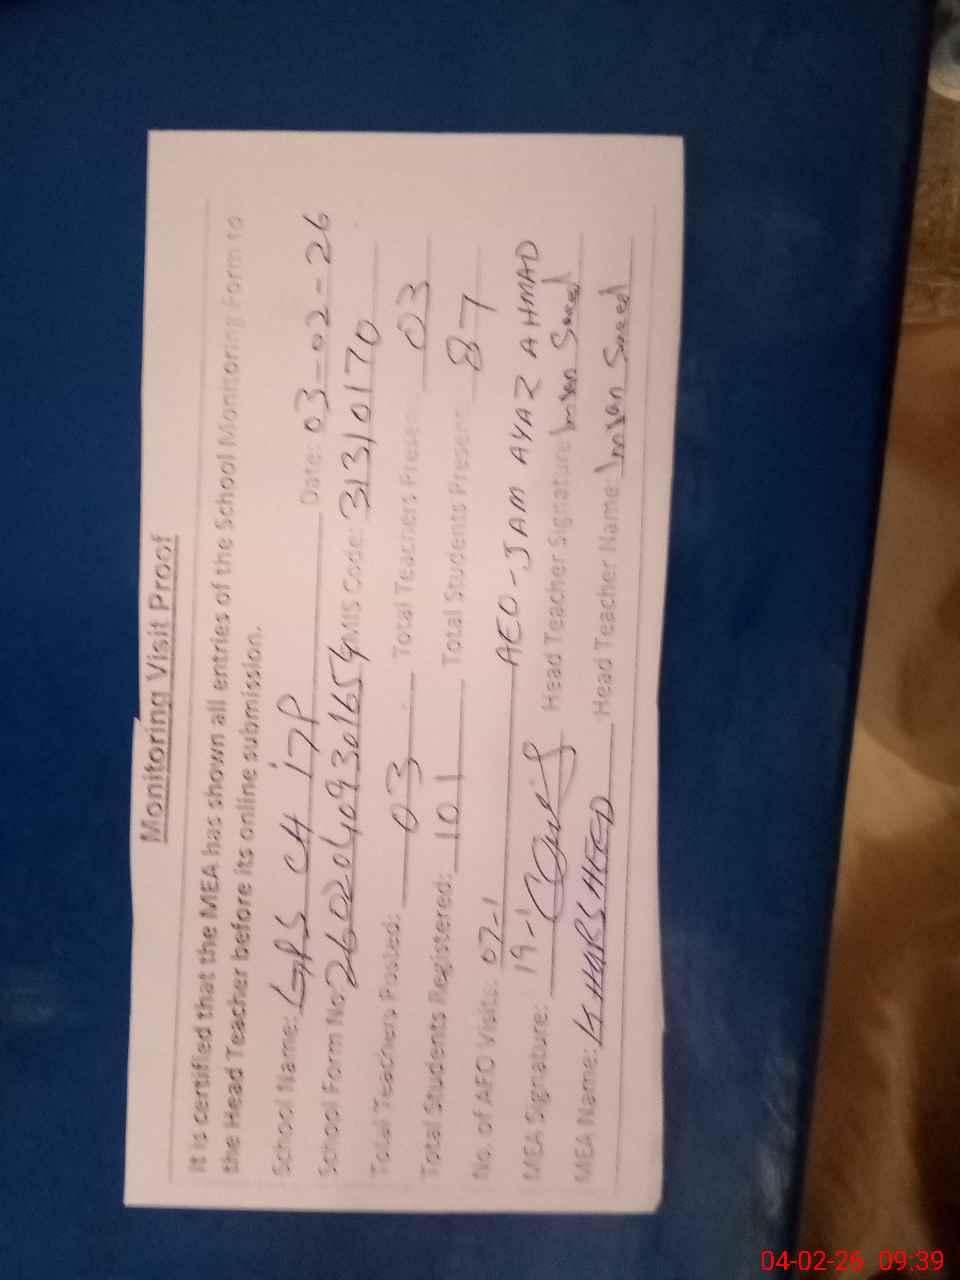 Monitoring Visit Proof
It is certified that the MEA has shown all entries of the School Monitoring Form to
the Head Teacher before its online submission.
School Name: GPS CH 17P Date: 03-02-26
School Form No: 26020409301654 EMIS Code: 31310170
Total Teachers Posted: 03 Total Teachers Present: 03
Total Students Registered: 101 Total Students Present: 87
No. of AEO Visits: 07-1 AEO-JAM AYAZ AHMAD
19-1
MEA Signature: Head Teacher Signature: Imran Saeed
MEA Name: KHURSHEED Head Teacher Name: Imran Saeed
04-02-26 09:39